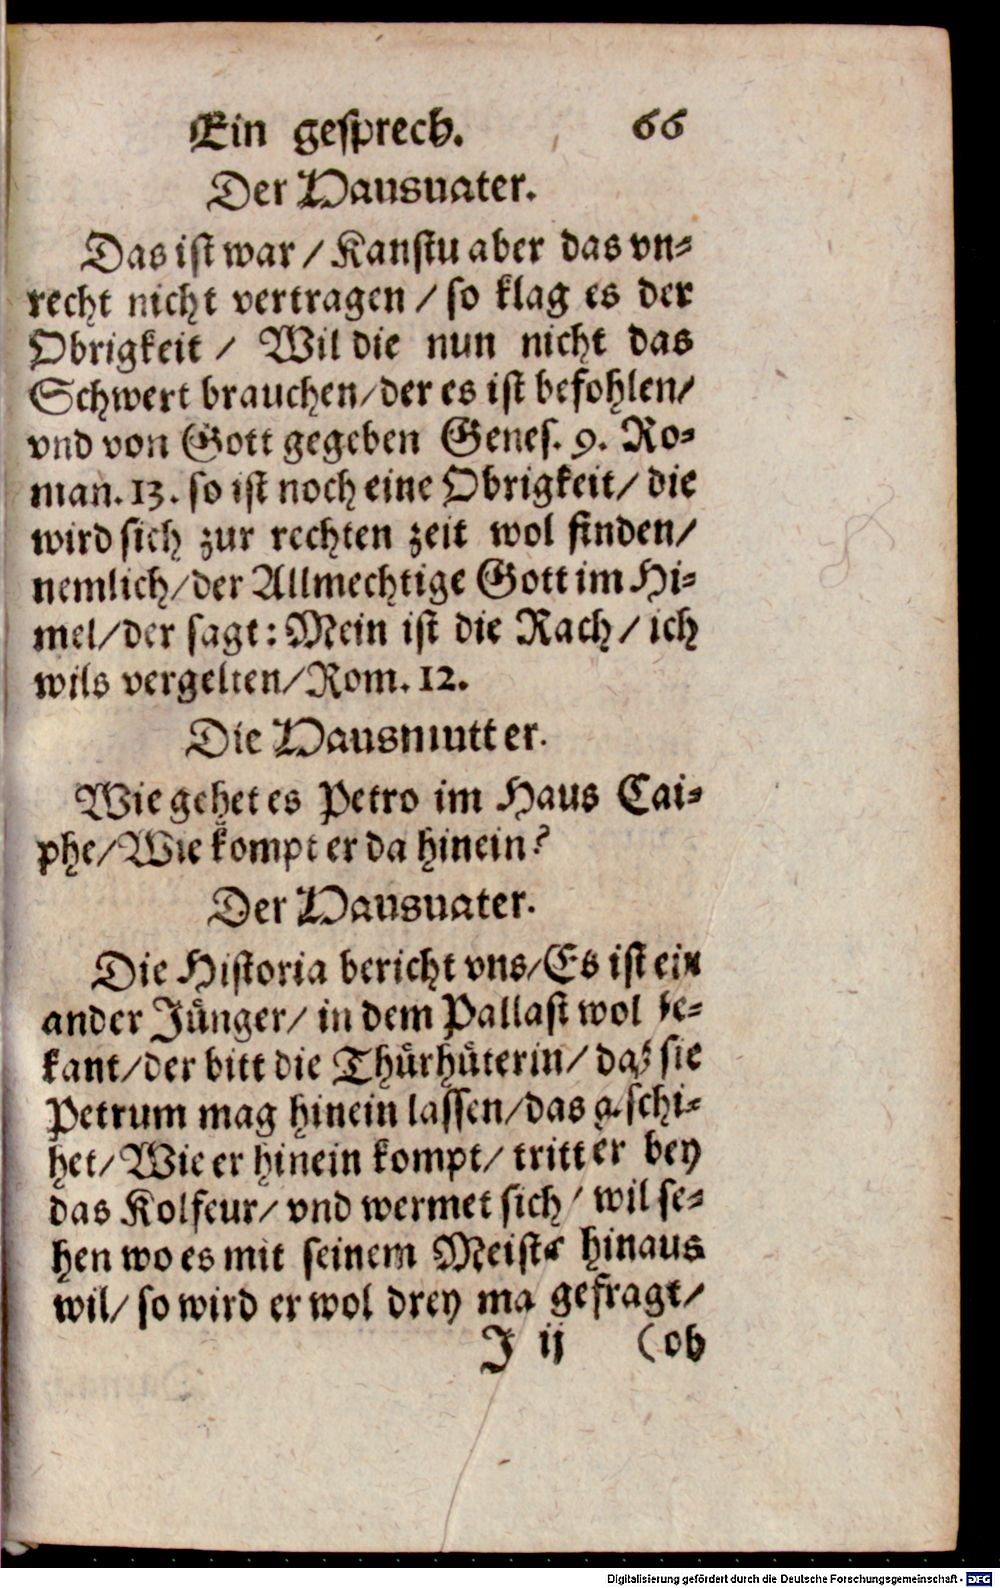 Ein gesprech. 66
Der Hausuater.
Das ist war / Kanstu aber das vn⸗
recht nicht vertragen / so klag es der
Obrigkeit / Wil die nun nicht das
Schwert brauchen / der es ist befohlen /
vnd von Gott gegeben Genes. 9. Ro⸗
man. 13. so ist noch eine Obrigkeit / die
wird sich zur rechten zeit wol finden /
nemlich / der Allmechtige Gott im Hi⸗
mel / der sagt: Mein ist die Rach / ich
wils vergelten / Rom. 12.
Die Hausmutter.
Wie gehet es Petro im Haus Cai⸗
phe / Wie kompt er da hinein?
Der Hausuater.
Die Historia bericht vns / Es ist ein
ander Jünger / in dem Pallast wol be⸗
kant / der bitt die Thürhüterin / daz sie
Petrum mag hinein lassen / das geschi⸗
het / Wie er hinein kompt / tritt er bey
das Kolfeur / vnd wermet sich / wil se⸗
hen wo es mit seinem Meister hinaus
wil / so wird er wol drey mal gefragt /
J ij (ob
Digitalisierung gefördert durch die Deutsche Forschungsgemeinschaft - DFG